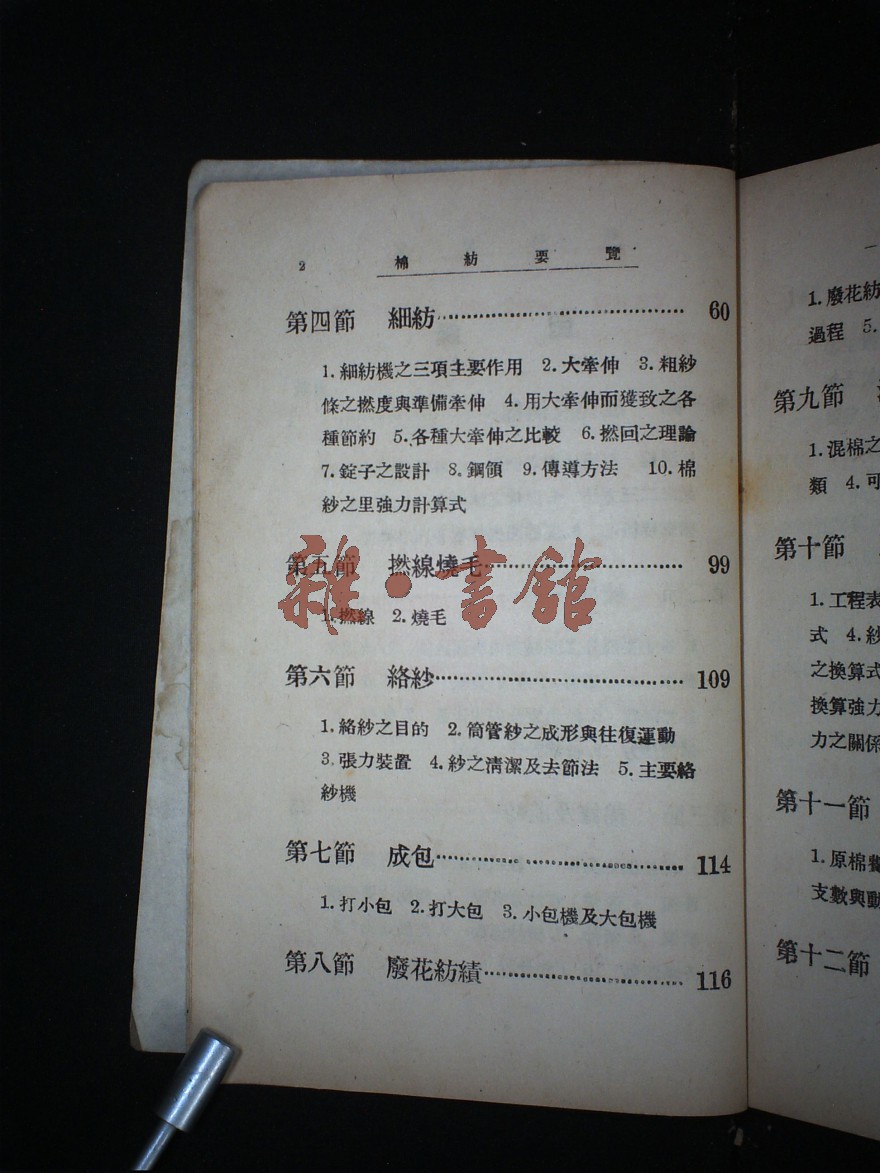 2 棉紡要覽
第四節 細紡 60
1.細紡機之三項主要作用 2.大牽伸 3.粗紗
條之撚度與準備牽伸 4.用大牽伸而獲致之各
種節約 5.各種大牽伸之比較 6.撚回之理論
7.錠子之設計 8.鋼領 9.傳導方法 10.棉
紗之里強力計算式
第五節 撚線燒毛 99
1.撚線 2.燒毛
雜·書館
第六節 絡紗 109
1.絡紗之目的 2.筒管紗之成形與往復運動
3.張力裝置 4.紗之清潔及去節法 5.主要絡
紗機
第七節 成包 114
1.打小包 2.打大包 3.小包機及大包機
第八節 廢花紡績 116
一
1.廢花紡
過程 5.
第九節
1.混棉之
類 4.可
第十節
1.工程表
式 4.紗
之換算式
換算強力
力之關係
第十一節
1.原棉
支數與動
第十二節